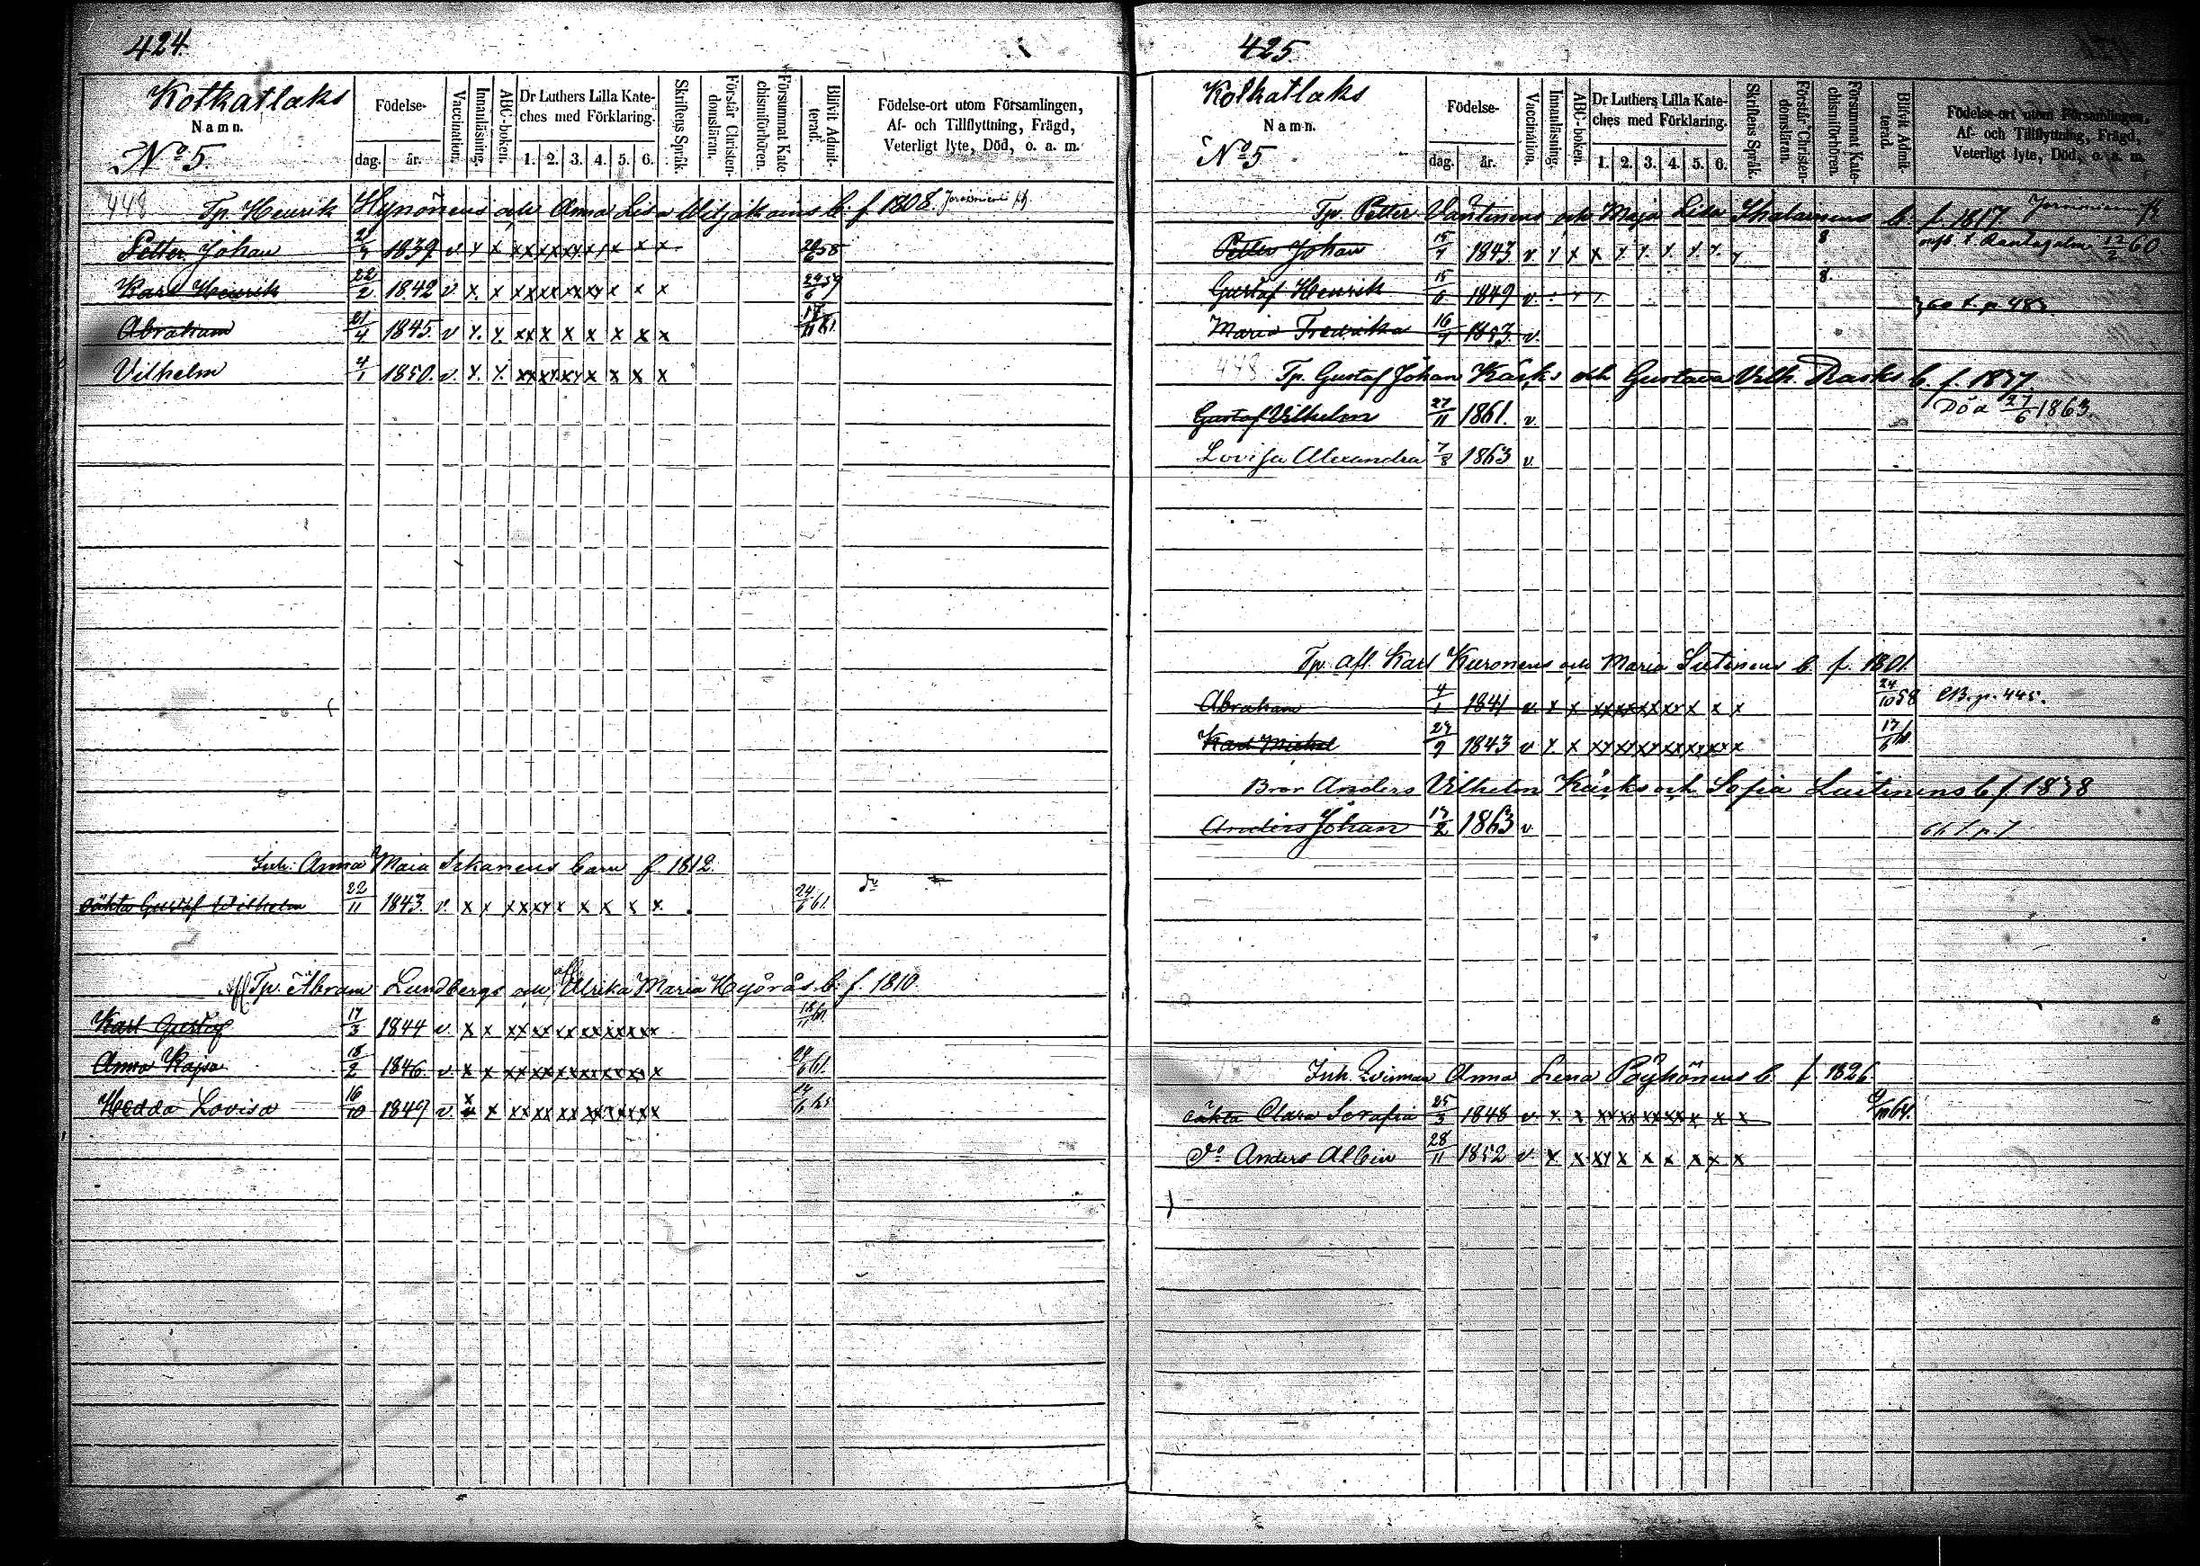 424.
Kotkatlaks
Namn.
No 5.
Födelse-
dag. år.
Vaccination.
Innanläsning.
ABC-boken.
Dr Luthers Lilla Kate-
ches med Förklaring.
1. 2. 3. 4. 5. 6.
Skriftens Språk.
Förstår Christen-
domsläran.
Försummat Kate-
chismiförhören.
Blifvit Admit-
terad.
Födelse-ort utom Församlingen,
Af- och Tillflyttning, Frägd,
Veterligt lyte, Död, o. a. m.
448 Tp. Henrik Hynönens och Anna Lisa b. f 1808.
Petter Johan 1839 v x x x x x x x x x x
Karl Henrik 22/2 1842 v x x x x x x x x x
Abraham 21/4 1845. v x x x x x x x x x x
Vilhelm 4/1 1850. v. x x x x x x x x x
Inh. Anna Maia barn f. 1812.
oäkta Gustaf Wilhelm 22/11 1843. v. x x x x x x x x x 24/6 61.
Tp. Abram Lundbergs och Ulrika Maria b. f. 1810.
Karl Gustaf 17/3 1844 v. x x x x x x x x x
Anna Kajsa 18/2 1846. v. x x x x x x x x x
Hedda Lovisa 16/10 1849 v. x x x x x x x x x
425.
Kotkatlaks
Namn.
No 5
Födelse-
dag. år.
Vaccination.
Innanläsning.
ABC-boken.
Dr Luthers Lilla Kate-
ches med Förklaring.
1. 2. 3. 4. 5. 6.
Skriftens Språk.
Förstår Christen-
domsläran.
Försummat Kate-
chismiförhören.
Blifvit Admit-
terad.
Födelse-ort utom Församlingen,
Af- och Tillflyttning, Frägd,
Veterligt lyte, Död, o. a. m.
Tp. Petter och Maja Lisa b. f. 1817.
Petter Johan 1843 v x x x x x x x x 8 12/2 60
Gustaf Henrik 15/6 1849 v. 8
Maria Fredrika v.
448 Tp. Gustaf Johan Kärks och Gustava Vilh. Rasks b. f. 1837.
Gustaf Vilhelm 27/11 1861. v. Död 27/6 1863.
Lovisa Alexandra 7/8 1863 v.
Tp. afl. Karl Kuronens och Maria b. f. 1801.
Abraham 4/1 1841 v. x x x x x x x x x 24/10 58
Karl Mickel 1843 v x x x x x x x x x
Bror Anders Vilhelm Kärks och Sofia b f. 1838
Anders Johan 1863 v
Inh. Anna Lena Pöyhönens b. f. 1826
oäkta Clara Serafia 25/3 1848 v. x x x x x x x x x
do Anders Albin 28/11 1852 v. x x x x x x x x x